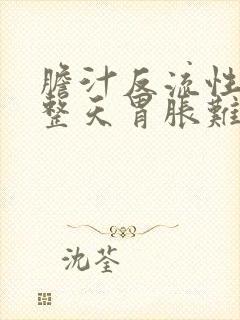 膽汁反流性
整天胃脹難
沈荃